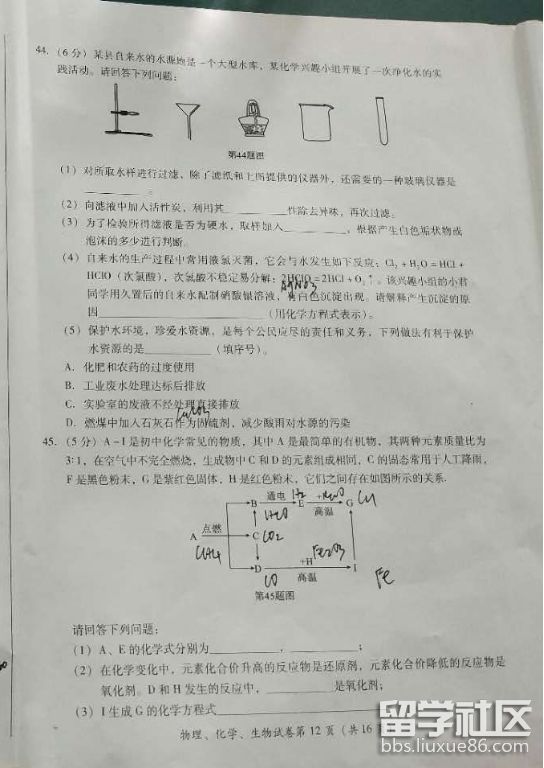 44. (6分) 某县自来水的水源地是一个大型水库,某化学兴趣小组开展了一次净化水的实
践活动。请回答下列问题:
第44题图
(1) 对所取水样进行过滤,除了滤纸和上图提供的仪器外,还需要的一种玻璃仪器是
________。
(2) 向滤液中加入活性炭,利用其________性除去异味,再次过滤。
(3) 为了检验所得滤液是否为硬水,取样加入________,根据产生白色垢状物或
泡沫的多少进行判断。
(4) 自来水的生产过程中常用液氯灭菌,它会与水发生如下反应:Cl₂+H₂O=HCl+
HClO(次氯酸),次氯酸不稳定易分解:2HClO=2HCl+O₂↑。该兴趣小组的小君
AgNO3
同学用久置后的自来水配制硝酸银溶液,有白色沉淀出现。请解释产生沉淀的原
因________(用化学方程式表示)。
(5) 保护水环境,珍爱水资源,是每个公民应尽的责任和义务,下列做法有利于保护
水资源的是________(填序号)。
A. 化肥和农药的过度使用
B. 工业废水处理达标后排放
C. 实验室的废液不经处理直接排放
CaCO3
D. 燃煤中加入石灰石作为固硫剂,减少酸雨对水源的污染
45. (5分) A-I是初中化学常见的物质,其中A是最简单的有机物,其两种元素质量比为
3:1,在空气中不完全燃烧,生成物中C和D的元素组成相同,C的固态常用于人工降雨,
F是黑色粉末,G是紫红色固体,H是红色粉末,它们之间存在如图所示的关系.
B 通电 H2 E 高温 G Cu
H2O
A 点燃 C CO2
CH4
D +H Fe2O3 高温 I
CO Fe
第45题图
请回答下列问题:
(1) A、E的化学式分别为________,________;
(2) 在化学变化中,元素化合价升高的反应物是还原剂,元素化合价降低的反应物是
氧化剂。D和H发生的反应中,________是氧化剂;
(3) I生成G的化学方程式________
物理、化学、生物试卷第12页(共16
留学社区
bbs.liuxue86.com